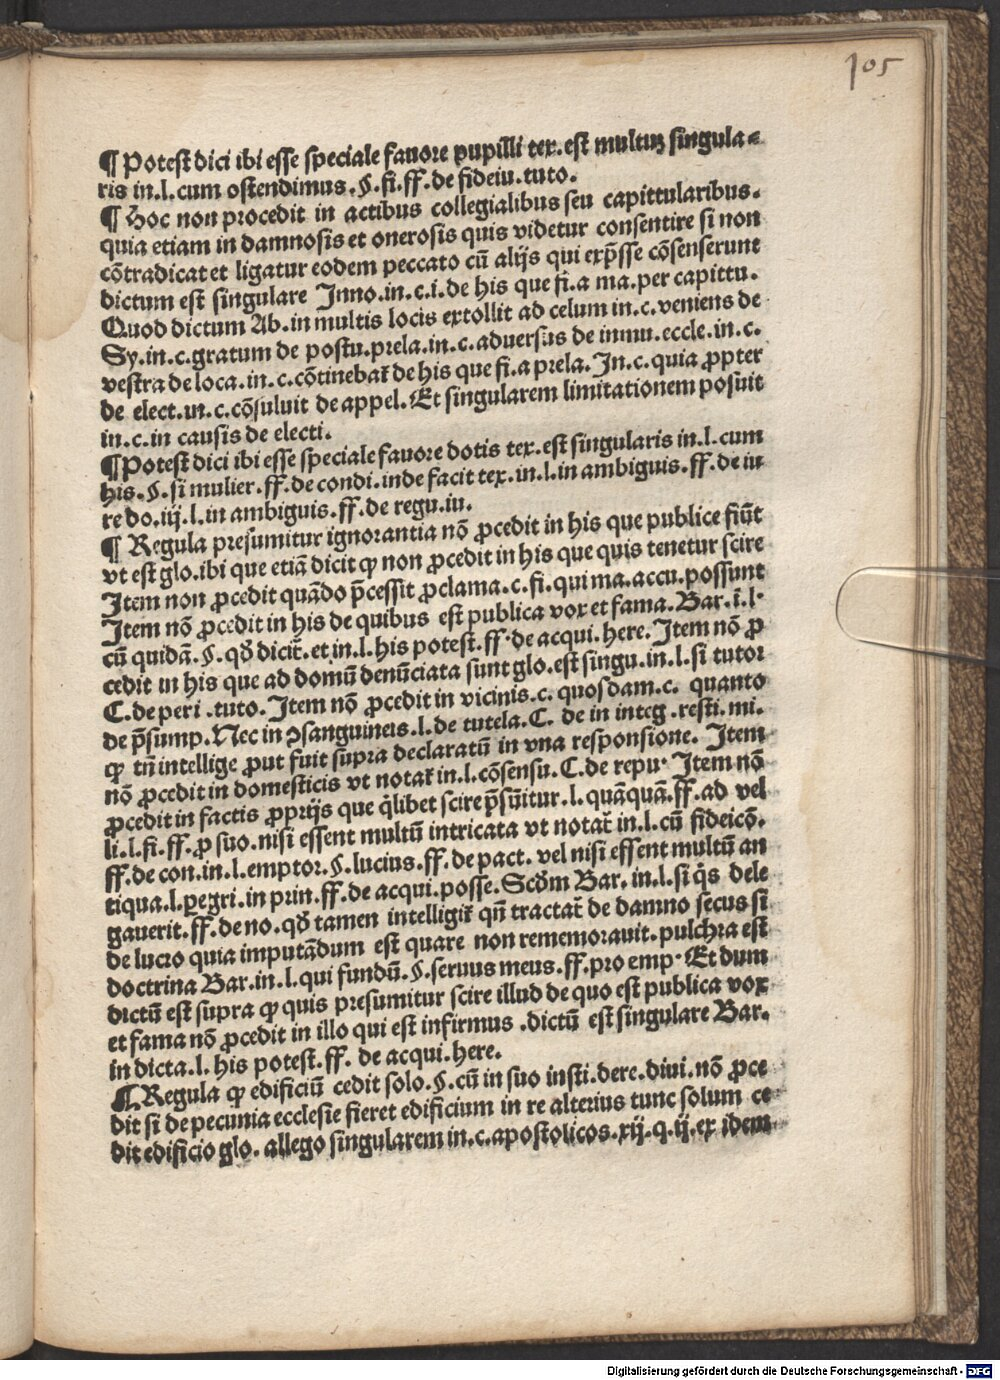 105
¶ Potest dici ibi esse speciale fauore pupilli tex. est multuꝫ singula⸗
ris in. l. cum ostendimus. §. fi. ff. de fideiu. tuto.
¶ Hoc non procedit in actibus collegialibus seu capittularibus.
quia etiam in damnosis et onerosis quis videtur consentire si non
cōtradicat et ligatur eodem peccato cū alijs qui exp̄sse cōsenserunt
dictum est singulare Inno. in. c. i. de his que fi. a ma. per capittu.
Quod dictum Ab. in multis locis extollit ad celum in. c. veniens de
Sy. in. c. gratum de postu. prela. in. c. aduersus de inmu. eccle. in. c.
vestra de loca. in. c. cōtinebat̄ de his que fi. a prela. In. c. quia ꝓpter
de elect. in. c. cōsuluit de appel. Et singularem limitationem posuit
in. c. in causis de electi.
¶ Potest dici ibi esse speciale fauore dotis tex. est singularis in. l. cum
his. §. si mulier. ff. de condi. inde facit tex. in. l. in ambiguis. ff. de iu
re do. iij. l. in ambiguis. ff. de regu. iu.
¶ Regula presumitur ignorantia nō ꝓcedit in his que publice fiūt
vt est glo. ibi que etiā dicit ꝙ non ꝓcedit in his que quis tenetur scire
Item non ꝓcedit quādo p̄cessit ꝓclama. c. fi. qui ma. accu. possunt
Item nō ꝓcedit in his de quibus est publica vox et fama. Bar. ī. l.
cū quidā. §. qđ dicit̄. et in. l. his potest. ff. de acqui. here. Item nō ꝓ
cedit in his que ad domū denūciata sunt glo. est singu. in. l. si tutor
C. de peri . tuto. Item nō ꝓcedit in vicinis. c. quosdam. c. quanto
de p̄sump. Nec in ↄsanguineis. l. de tutela. C. de in integ . resti. mi.
ꝙ tn̄ intellige ꝓut fuit supra declaratū in vna responsione. Item
nō ꝓcedit in domesticis vt notat̄ in. l. cōsensu. C. de repu. Item nō
ꝓcedit in factis ꝓprijs que q̄libet scire p̄sūitur. l. quāquā. ff. ad vel
li. l. fi. ff. ꝓ suo. nisi essent multū intricata vt notat̄ in. l. cū fideicō.
ff. de con. in. l. emptor. §. lucius. ff. de pact. vel nisi essent multū an
tiqua. l. ꝑegri. in prin. ff. de acqui. posse. Scđm Bar. in. l. si q̄s dele
gauerit. ff. de no. qđ tamen intelligit̄ qn̄ tractat̄ de damno secus si
de lucro quia imputādum est quare non rememorauit. pulchra est
doctrina Bar. in. l. qui fundū. §. seruus meus. ff. pro emp. Et dum
dictū est supra ꝙ quis presumitur scire illud de quo est publica vox
et fama nō ꝓcedit in illo qui est infirmus . dictū est singulare Bar.
in dicta. l. his potest. ff. de acqui. here.
¶ Regula ꝙ edificiū cedit solo. §. cū in suo insti. de re. diui. nō ꝓce
dit si de pecunia ecclesie fieret edificium in re alterius tunc solum ce
dit edificio glo. allego singularem in. c. apostolicos. xij. q. ij. ex idem
Digitalisierung gefördert durch die Deutsche Forschungsgemeinschaft - DFG